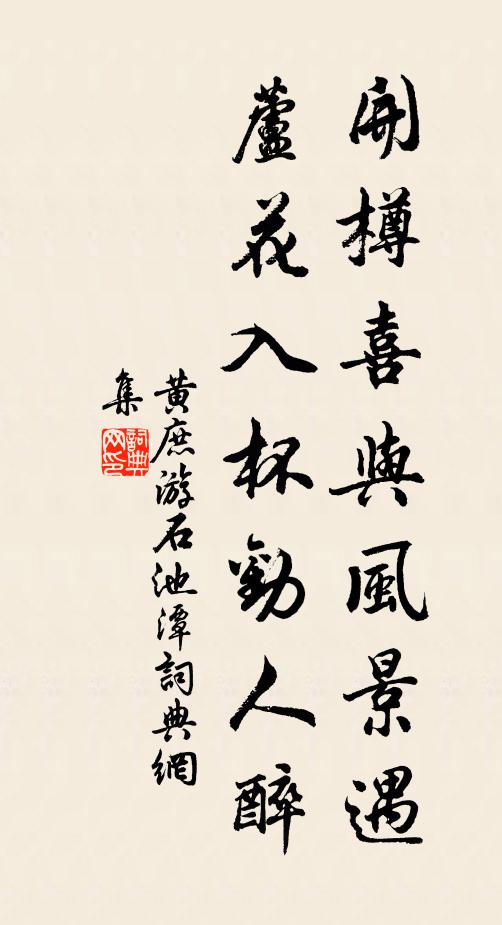 開樽喜與風景遇
蘆花入杯勸人醉
黄庶游石池潭詞典網
集
詞典
网印